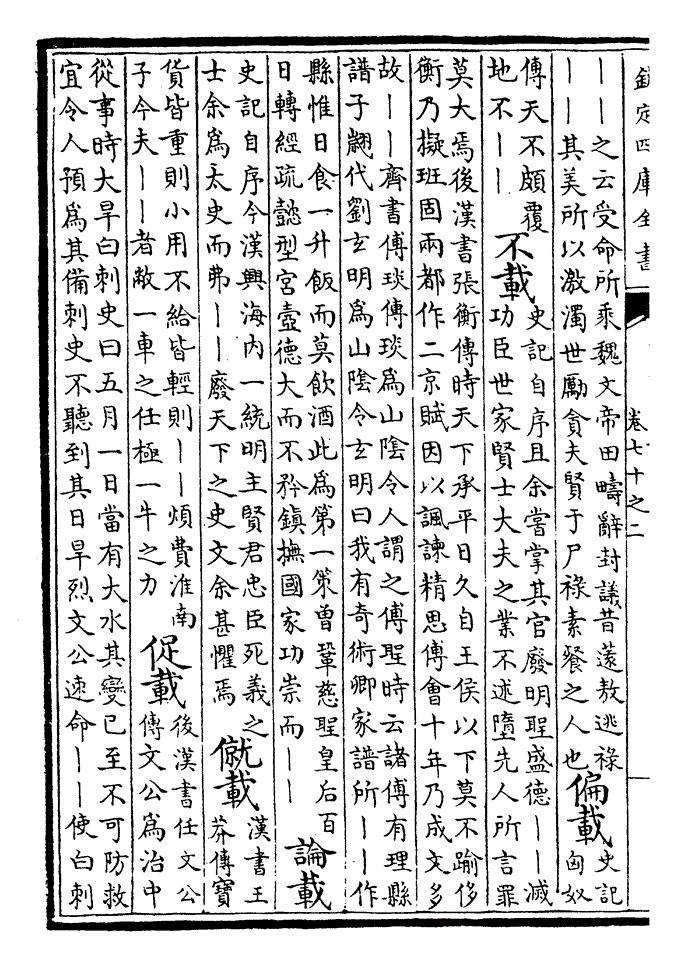 欽定四庫全書
卷七十之二
——之云受命所乘魏文帝田疇辭封議昔薳敖逃祿
——其美所以激濁世勵貪夫賢于尸祿素餐之人也
偏載
史記
匈奴
傳天不頗覆
地不——
不載
史記自序且余嘗掌其官廢明聖盛德——滅
功臣世家賢士大夫之業不述墮先人所言罪
莫大焉後漢書張衡傳時天下承平日久自王侯以下莫不踰侈
衡乃擬班固兩都作二京賦因以諷諫精思傅會十年乃成文多
故——齊書傅琰傳琰爲山陰令人謂之傅聖時云諸傅有理縣
譜子翽代劉玄明爲山陰令玄明曰我有奇術卿家譜所——作
縣惟日食一升飯而莫飲酒此爲第一策曾鞏慈聖皇后百
日轉經疏懿型宮壼德大而不矜鎮撫國家功崇而——
論載
史記自序今漢興海内一統明主賢君忠臣死義之
士余爲太史而弗——廢天下之史文余甚懼焉
僦載
漢書王
莽傳寶
貨皆重則小用不給皆輕則——煩費淮南
子今夫——者敝一車之任極一牛之力
促載
後漢書任文公
傳文公爲治中
從事時大旱白刺史曰五月一日當有大水其變已至不可防救
宜令人預爲其備刺史不聽到其日旱烈文公速命——使白刺